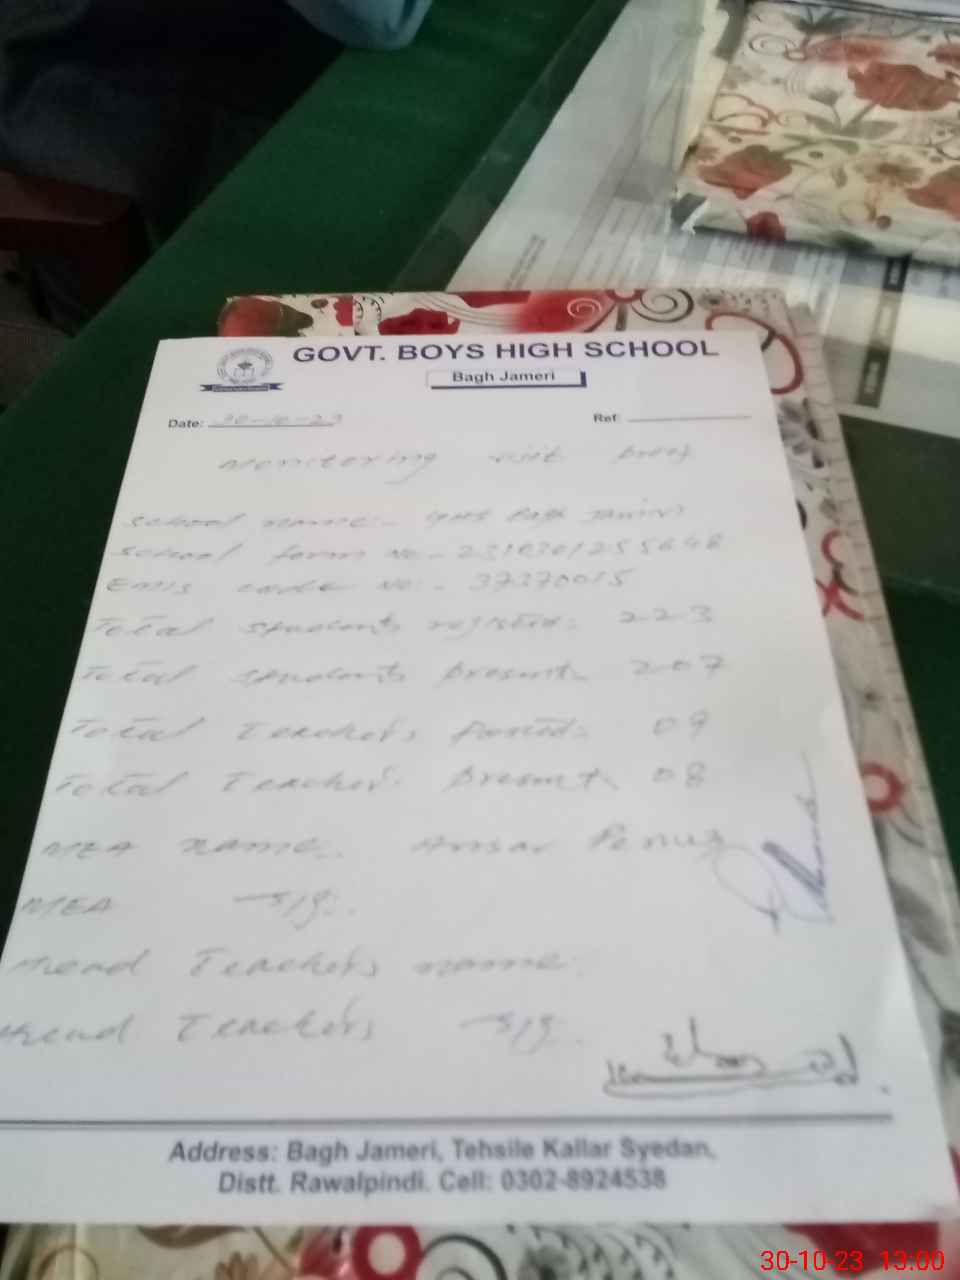 GOVT. BOYS HIGH SCHOOL
Bagh Jameri
Date: 30-10-23
Ref:
Monitoring visit proof
School name:- GHS Bagh Jamiri
School form No - 2310301255648
EMIS code No:- 37370015
Total students 223
Total students present 207
Total Teachers 09
Total Teachers present 08
MEA name. Ansar
MEA sig:.
Head Teachers name:
Head Teachers sig:.
Address: Bagh Jameri, Tehsile Kallar Syedan,
Distt. Rawalpindi. Cell: 0302-8924538
30-10-23 13:00